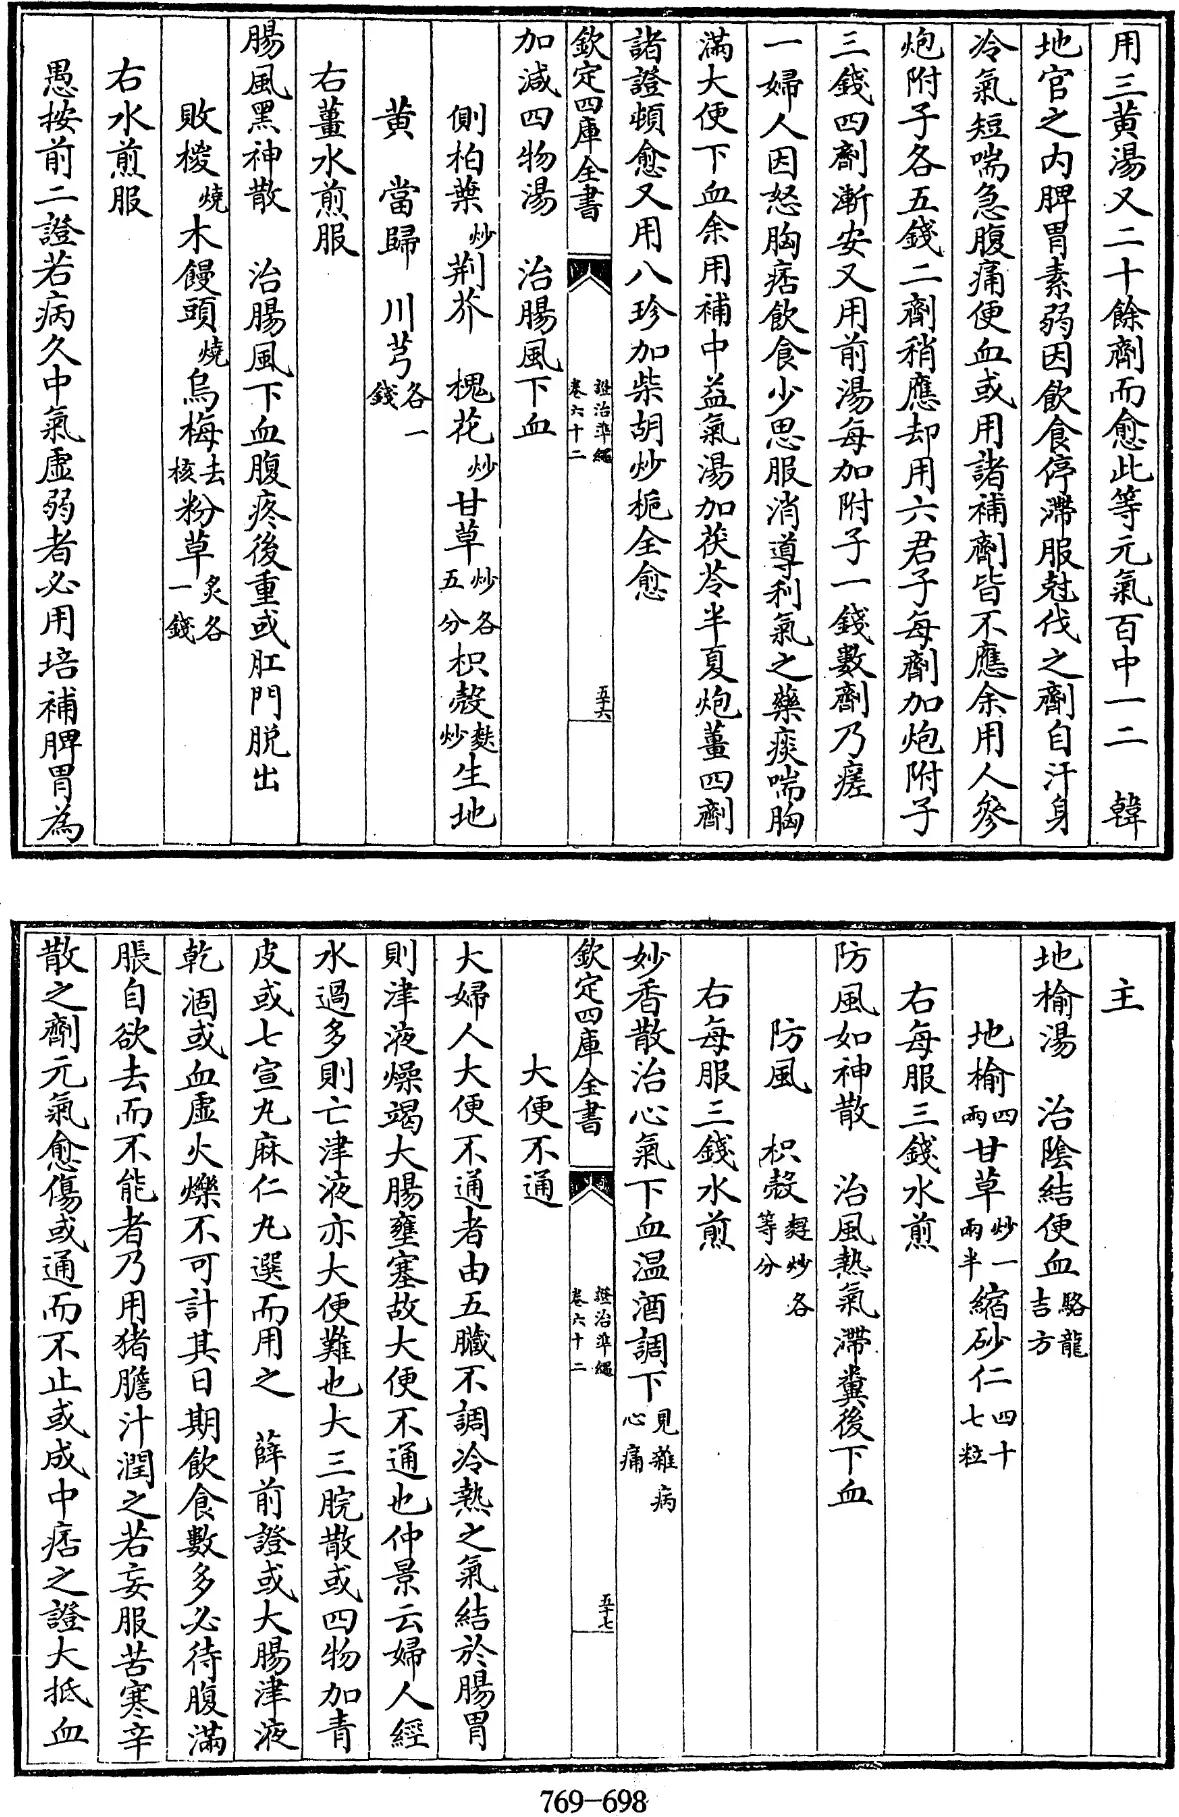 用三黄湯又二十餘劑而愈此等元氣百中一二　韓
地官之内脾胃素弱因飲食停滯服尅伐之劑自汗身
冷氣短喘急腹痛便血或用諸補劑皆不應余用人參
炮附子各五錢二劑稍應却用六君子每劑加炮附子
三錢四劑漸安又用前湯每加附子一錢數劑乃瘥
一婦人因怒胸痞飲食少思服消導利氣之藥痰喘胸
滿大便下血余用補中益氣湯加茯苓半夏炮薑四劑
諸證頓愈又用八珍加柴胡炒梔全愈
欽定四庫全書　證治準繩卷六十二　五十六
加減四物湯　治腸風下血
側柏葉炒荆芥　槐花炒甘草炒各五分枳殼麩炒生地
黄　當歸　川芎各一錢
右薑水煎服
腸風黑神散　治腸風下血腹疼後重或肛門脱出
敗椶燒木饅頭燒烏梅去核粉草炙各一錢
右水煎服
愚按前二證若病久中氣虛弱者必用培補脾胃為
主
地榆湯　治陰結便血駱龍吉方
地榆四兩甘草炒一兩半縮砂仁四十七粒
右每服三錢水煎
防風如神散　治風熱氣滯糞後下血
防風　枳殼麩炒各等分
右每服三錢水煎
妙香散治心氣下血温酒調下見雜病心痛
欽定四庫全書　證治準繩卷六十二　五十七
大便不通
大婦人大便不通者由五臟不調冷熱之氣結於腸胃
則津液燥竭大腸壅塞故大便不通也仲景云婦人經
水過多則亡津液亦大便難也大三脘散或四物加青
皮或七宣丸麻仁丸選而用之　薛前證或大腸津液
乾涸或血虛火爍不可計其日期飲食數多必待腹滿
脹自欲去而不能者乃用猪膽汁潤之若妄服苦寒辛
散之劑元氣愈傷或通而不止或成中痞之證大抵血
769-698